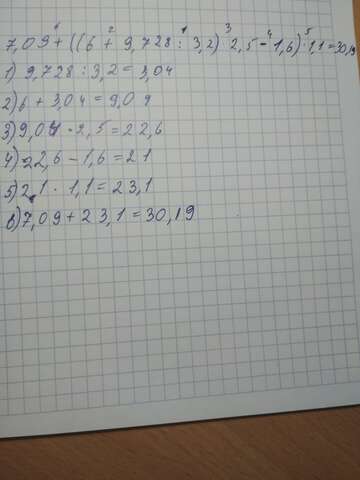 7,09+((6+9,728:3,2)·2,5-1,6)·1,1=30,19
1) 9,728:3,2=3,04
2) 6+3,04=9,04
3) 9,04·2,5=22,6
4) 22,6-1,6=21
5) 21·1,1=23,1
6) 7,09+23,1=30,19